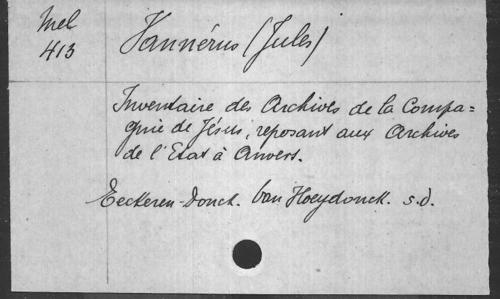 Mel
413
Vannérus (Jules)
Inventaire des Archives de la Compa=
gnie de Jésus, reposant aux Archives
de l'Etat à Anvers.
Eeckeren-Donck. Van Hoeydonck. s.d.